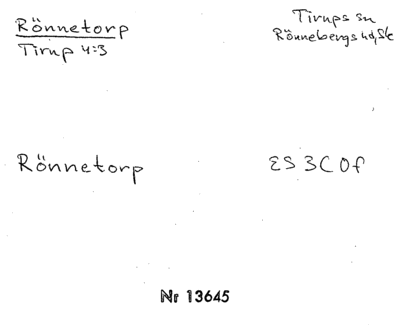 Rönnetorp
Tirup 4:3
Tirups sn
Rönnebergs hd, Sk
Rönnetorp
ES 3C 0f
Nr 13645